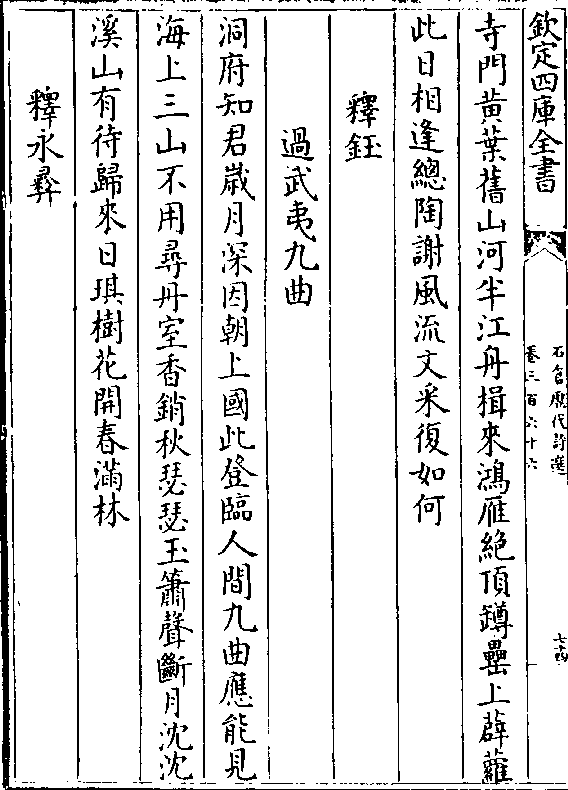 欽定四庫全書
石倉歷代詩選
卷三百六十六
七十四
寺門黃葉舊山河半江舟楫來鴻雁絶頂罇罍上薜蘿
此日相逢總陶謝風流文采復如何
釋鈺
過武夷九曲
洞府知君歲月深因朝上國此登臨人間九曲應能見
海上三山不用尋丹室香銷秋瑟瑟玉簫聲斷月沈沈
溪山有待歸來日琪樹花開春滿林
釋永彛